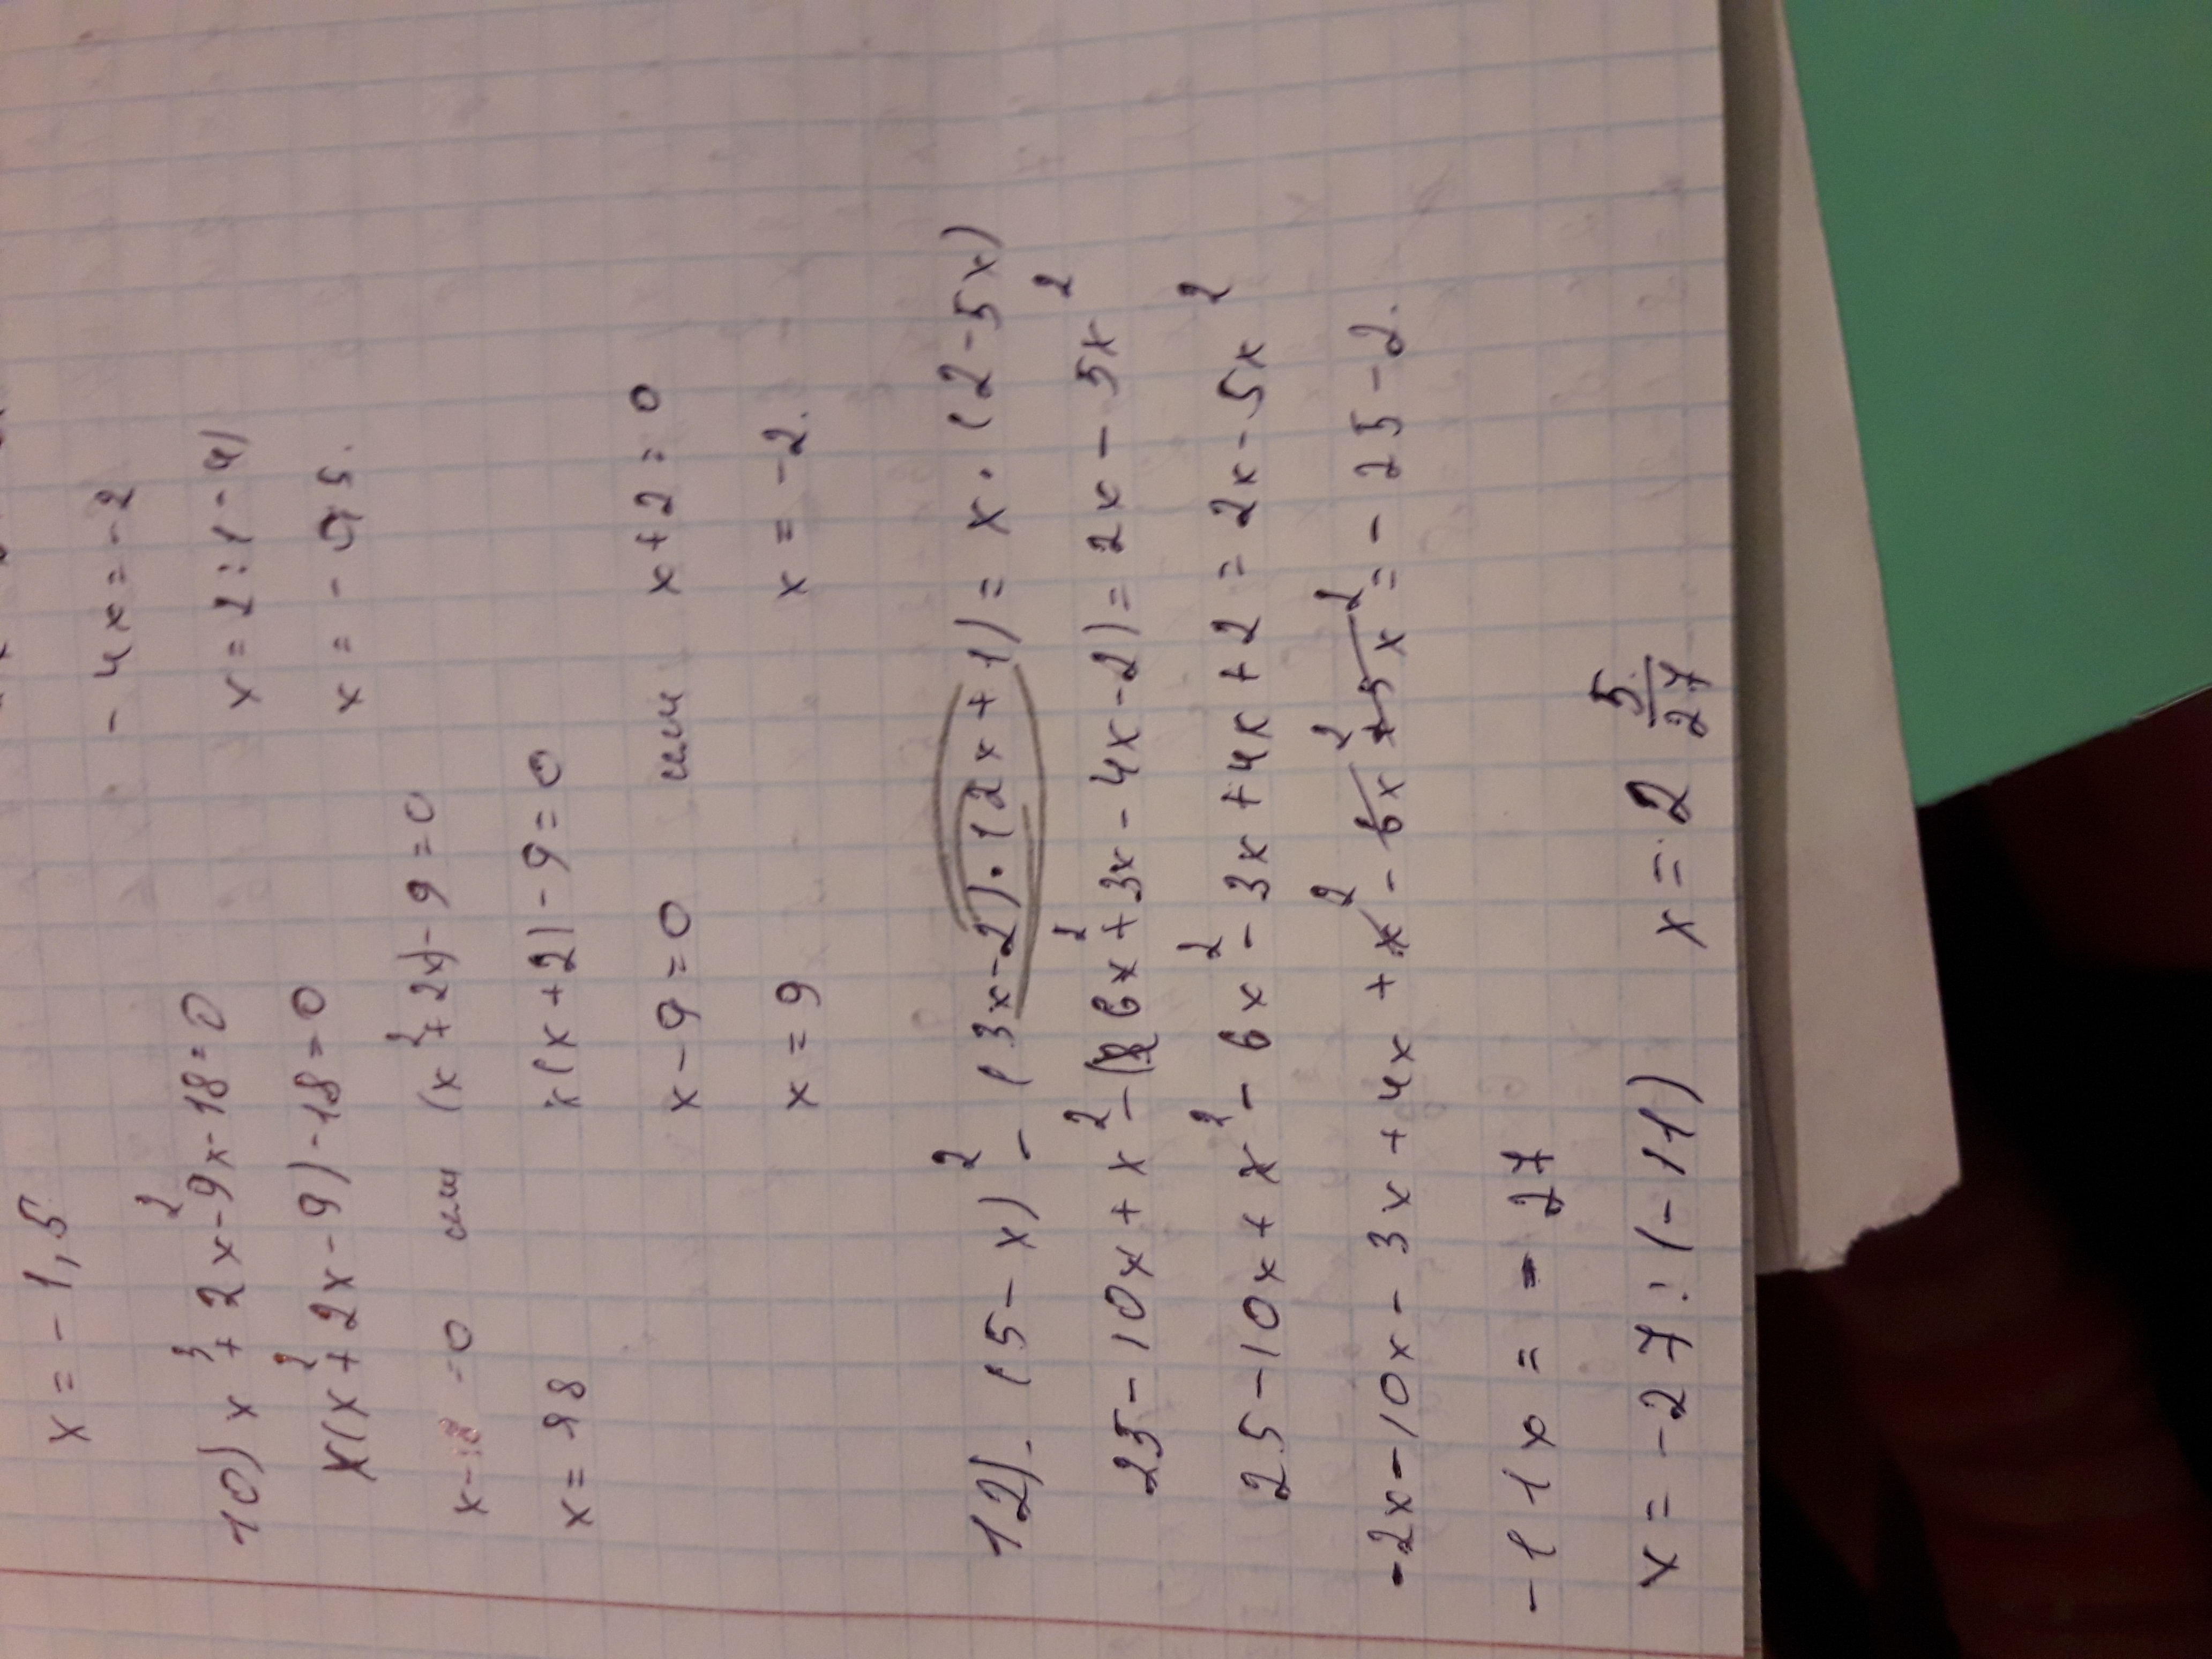 x = - 1,5
- 4x = - 2
x = 2 : (-4)
x = - 0,5.
10) x³ + 2x² - 9x - 18 = 0
x(x² + 2x - 9) - 18 = 0
x - 18 = 0 или (x² + 2x) - 9 = 0
x = 18
x(x + 2) - 9 = 0
x - 9 = 0 или x + 2 = 0
x = 9 x = -2.
12). (5 - x)² - (3x - 2) · (2x + 1) = x · (2 - 5x)
25 - 10x + x² - (6x² + 3x - 4x - 2) = 2x - 5x²
25 - 10x + x² - 6x² - 3x + 4x + 2 = 2x - 5x²
-2x - 10x - 3x + 4x + x² - 6x² + 5x² = - 25 - 2.
- 11x = - 27
x = - 27 : (- 11) x = 2 5/27